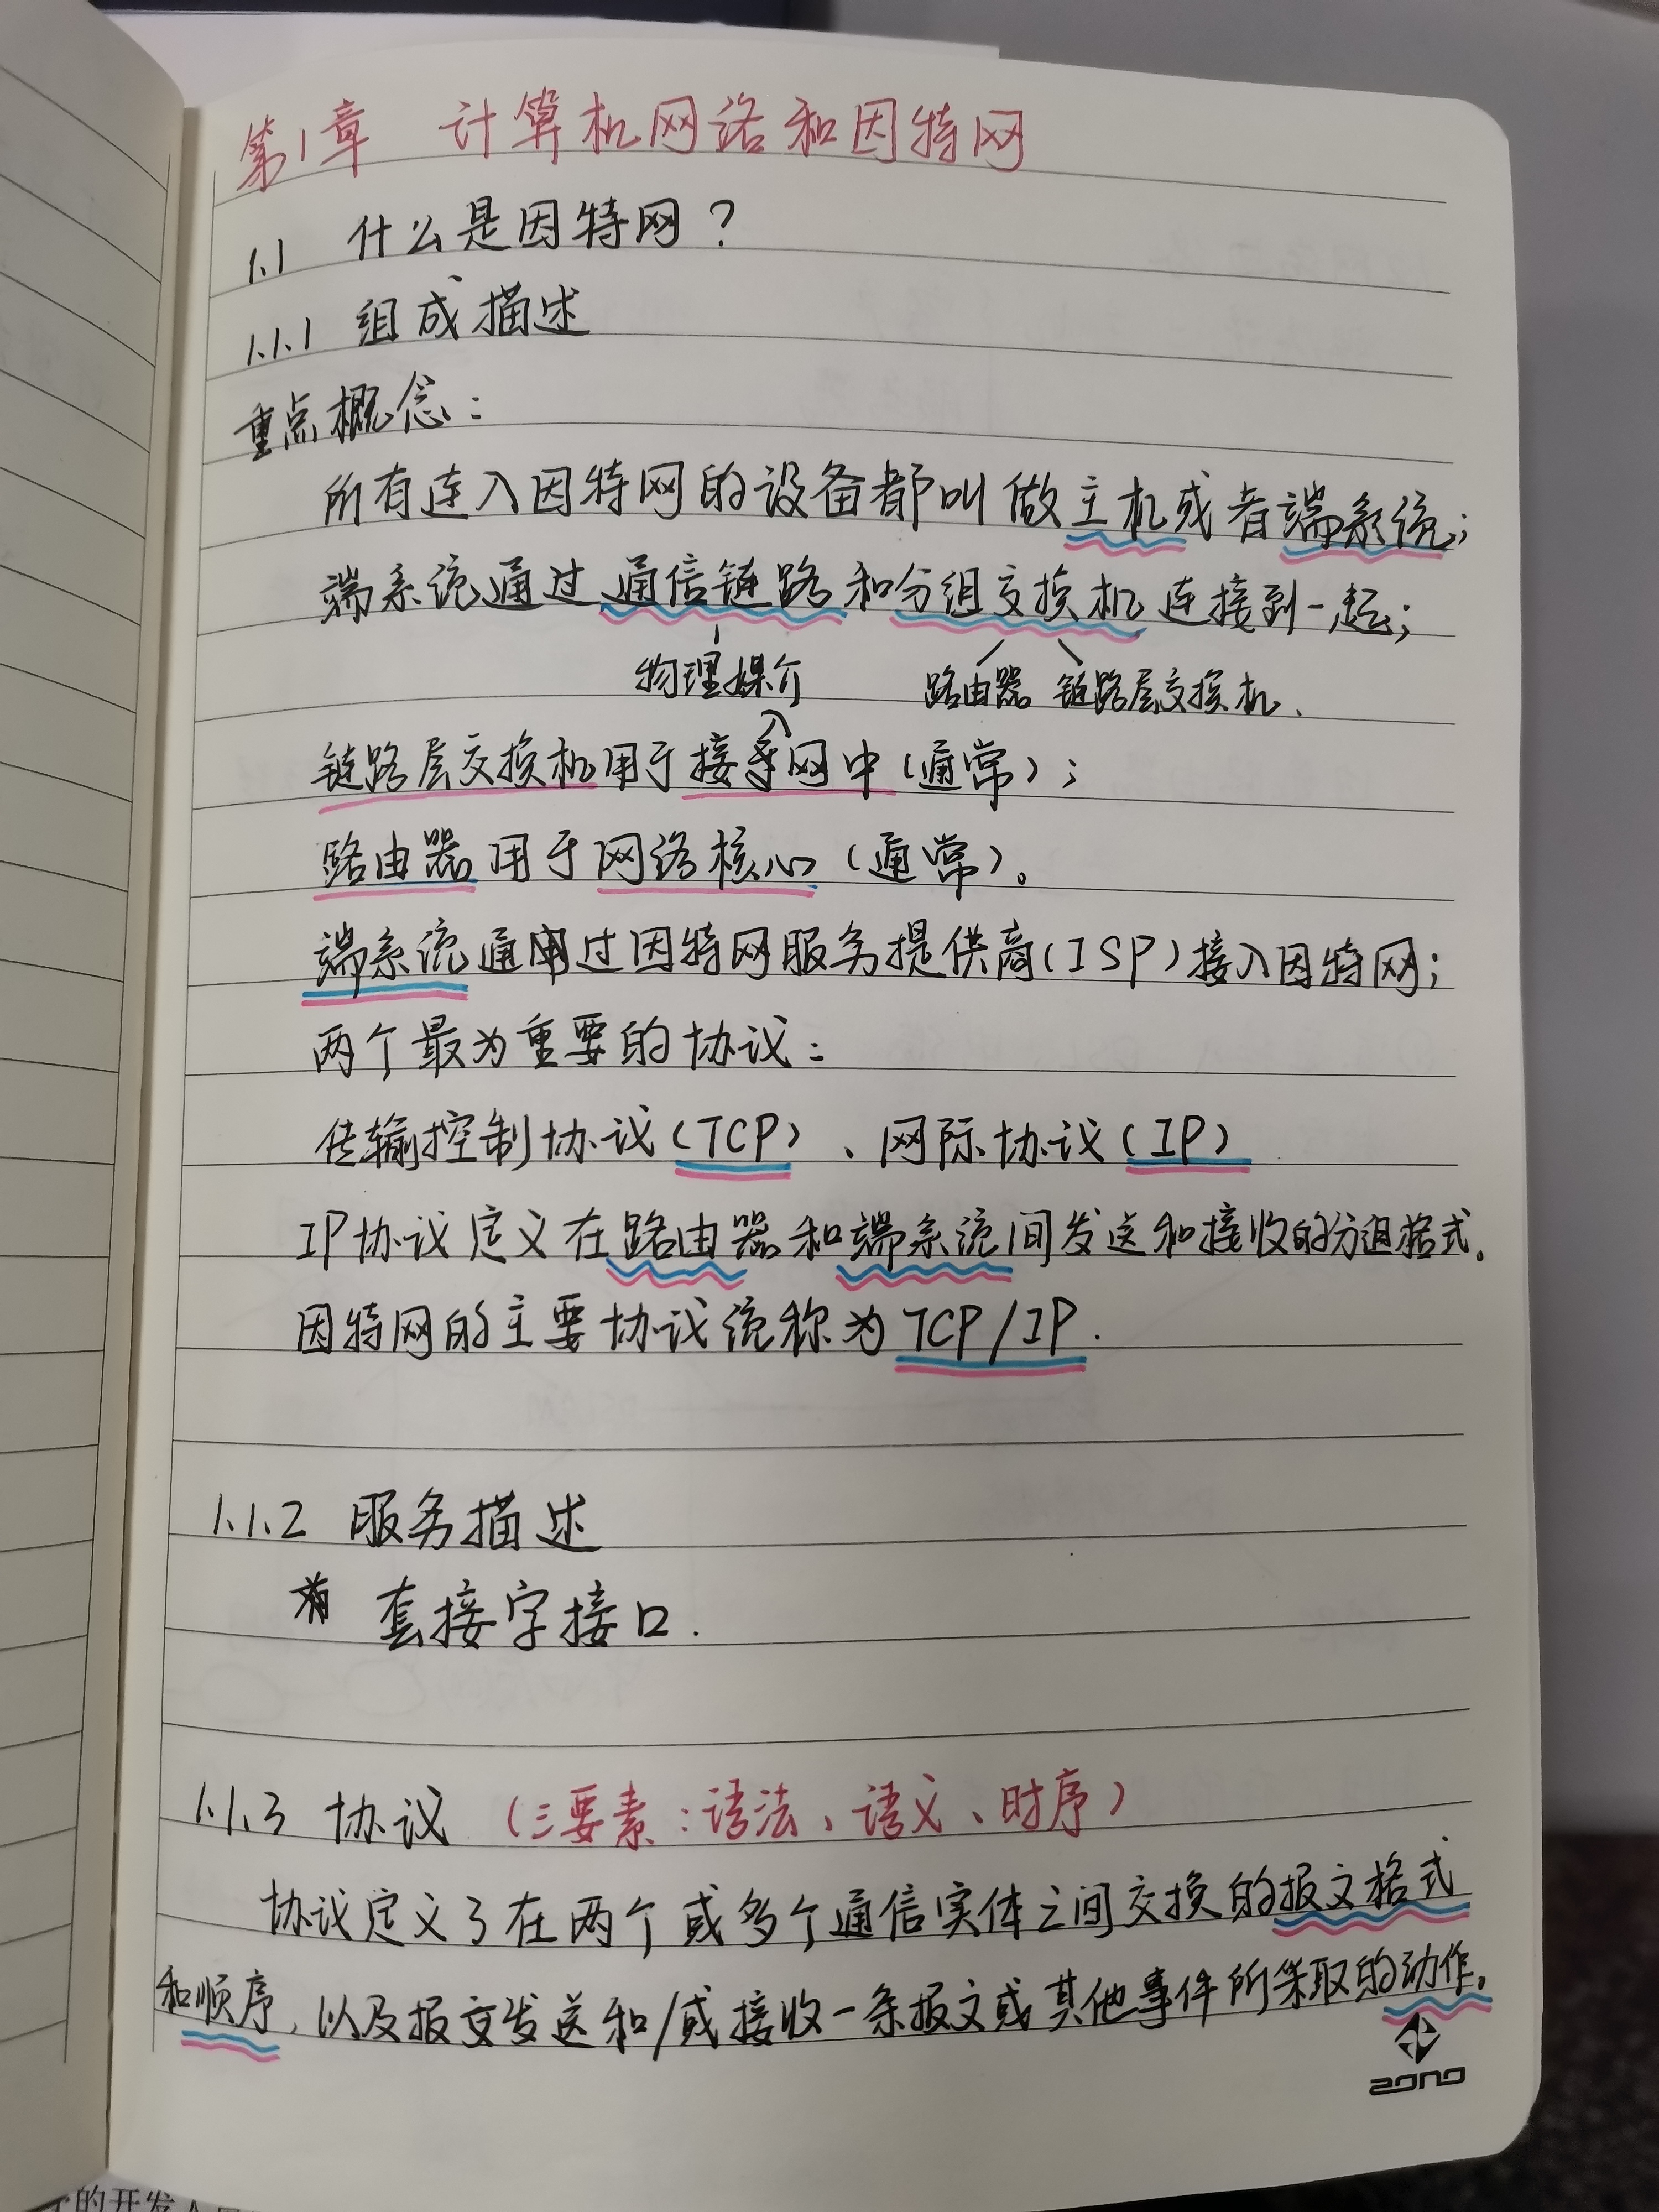 第1章 计算机网络和因特网
1.1 什么是因特网？
1.1.1 组成描述
重点概念：
所有连入因特网的设备都叫做主机或者端系统；
端系统通过通信链路和分组交换机连接到一起；
物理媒介 路由器 链路层交换机.
链路层交换机用于接入网中（通常）；
路由器用于网络核心（通常）。
端系统通过因特网服务提供商(ISP)接入因特网；
两个最为重要的协议：
传输控制协议(TCP)、网际协议(IP)
IP协议定义在路由器和端系统间发送和接收的分组格式。
因特网的主要协议统称为TCP/IP.
1.1.2 服务描述
套接字接口.
1.1.3 协议 （三要素：语法、语义、时序）
协议定义了在两个或多个通信实体之间交换的报文格式
和顺序，以及报文发送和/或接收一条报文或其他事件所采取的动作。
zono
的开发人员